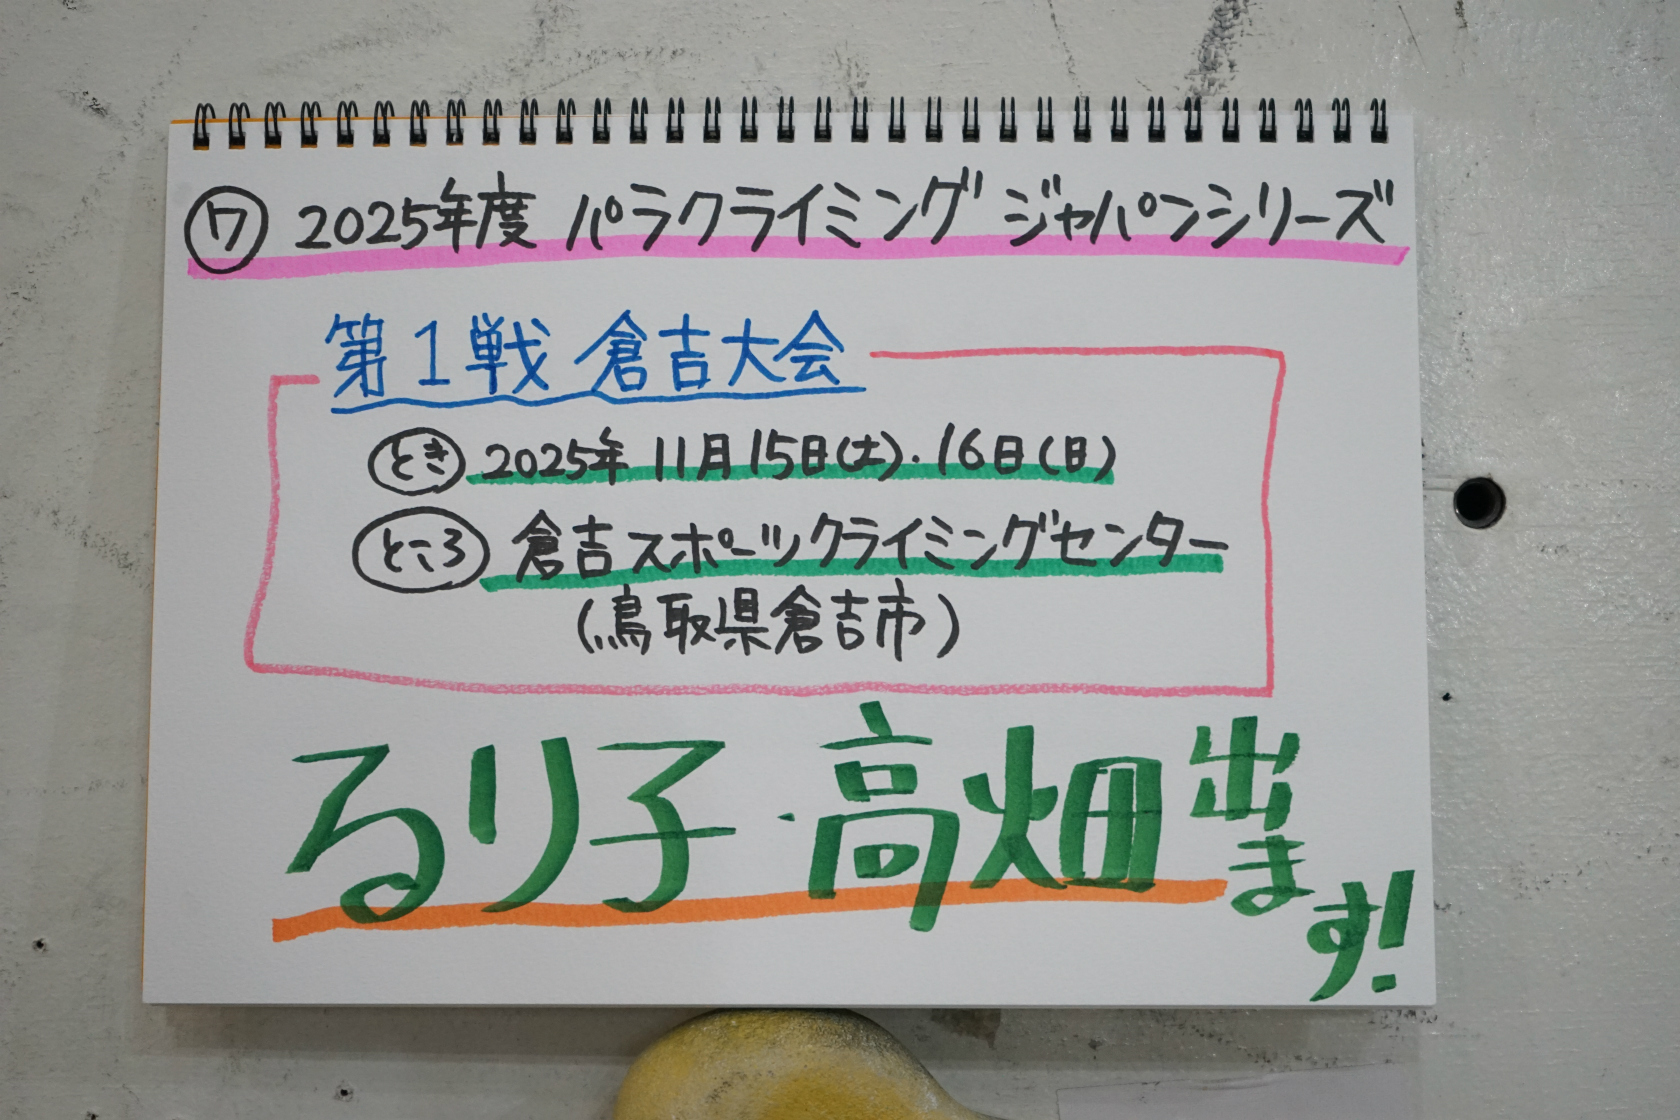 ⑦ 2025年度 パラクライミング ジャパンシリーズ
第1戦 倉吉大会
とき 2025年 11月15日(土)・16日(日)
ところ 倉吉スポーツクライミングセンター
(鳥取県倉吉市)
るり子・高畑出ます!